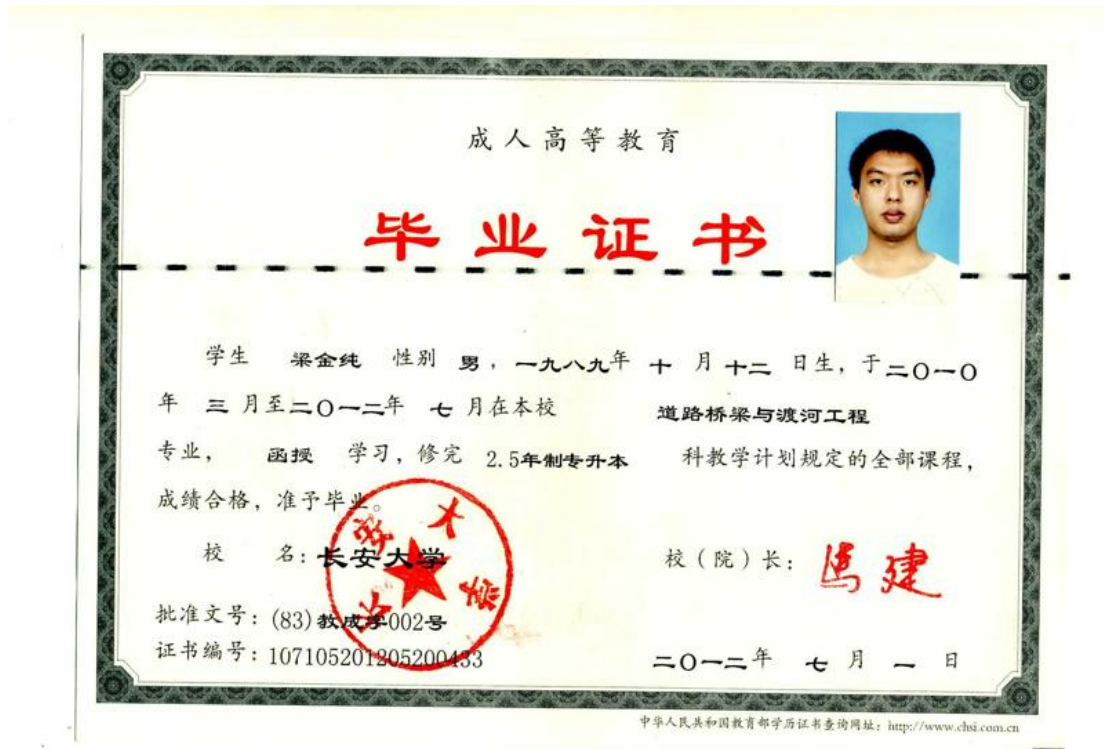 成人高等教育
毕业证书
学生 梁金纯 性别 男，一九八九年 十 月 十二 日生，于二〇一〇
年 三 月至二〇一二年 七 月在本校 道路桥梁与渡河工程
专业， 函授 学习，修完 2.5年制专升本 科教学计划规定的全部课程，
成绩合格，准予毕业。
长安大学
校 名：长安大学 校（院）长：马建
批准文号：(83)教成字002号
证书编号：107105201205200433 二〇一二年 七 月 一 日
中华人民共和国教育部学历证书查询网址：http://www.chsi.com.cn